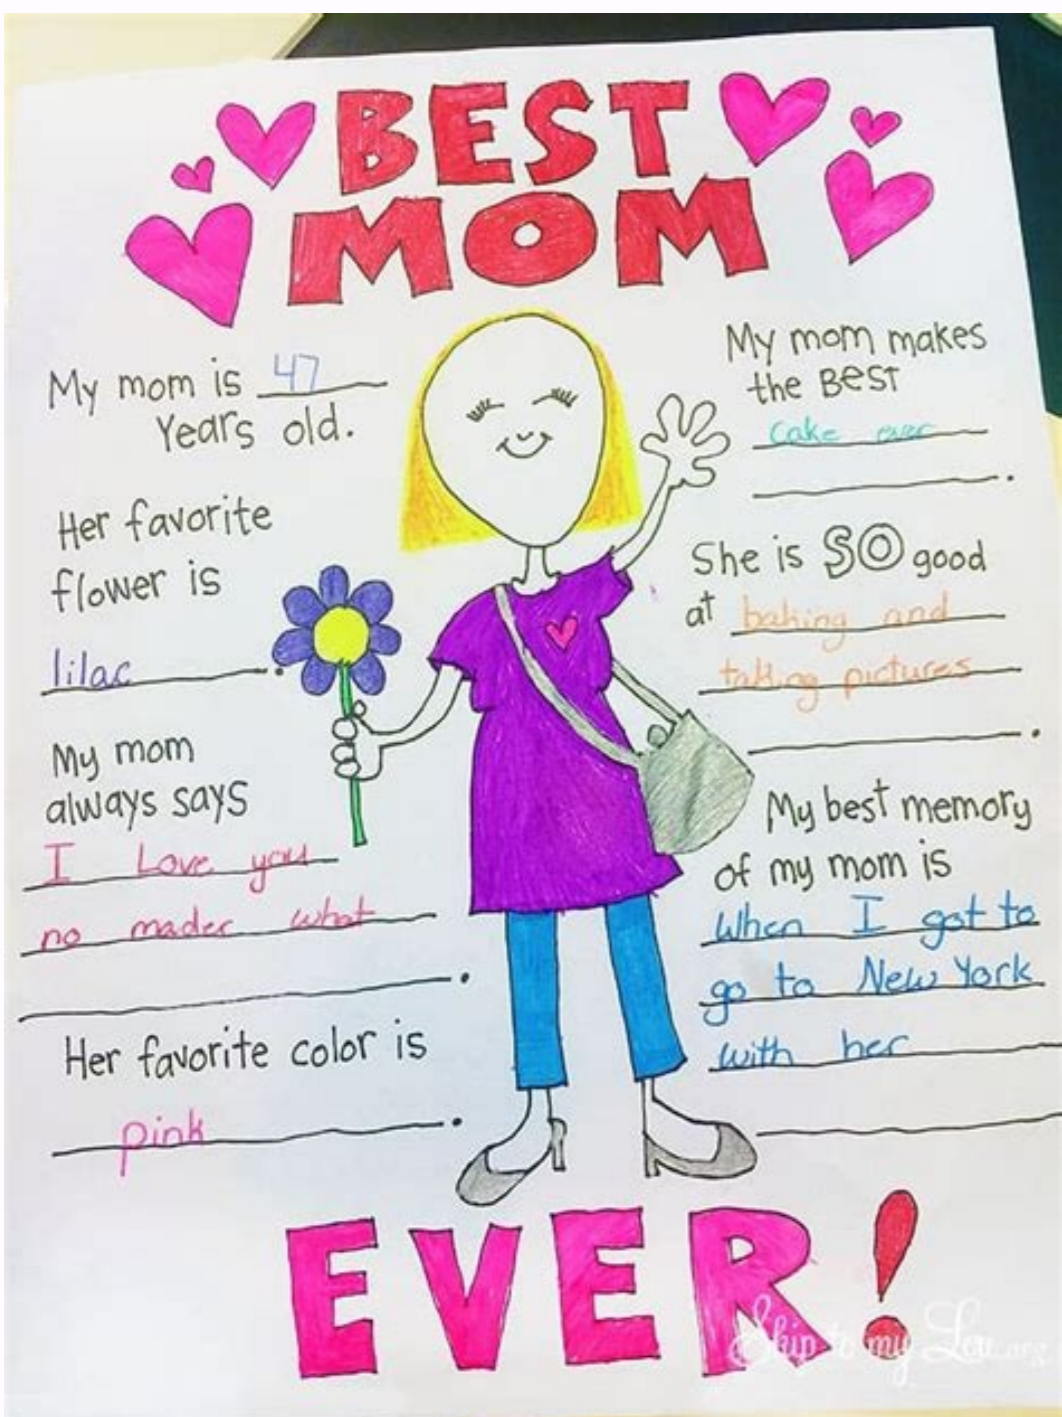 BEST
MOM
My mom is 47
Years old.
Her favorite
flower is
lilac.
My mom
always says
I Love you
no mader what
.
Her favorite color is
pink.
My mom makes
the BEST
cake ever
.
She is SO good
at baking and
taking pictures
.
My best memory
of my mom is
When I got to
go to New York
with her
EVER!
Skip to my Lou.org